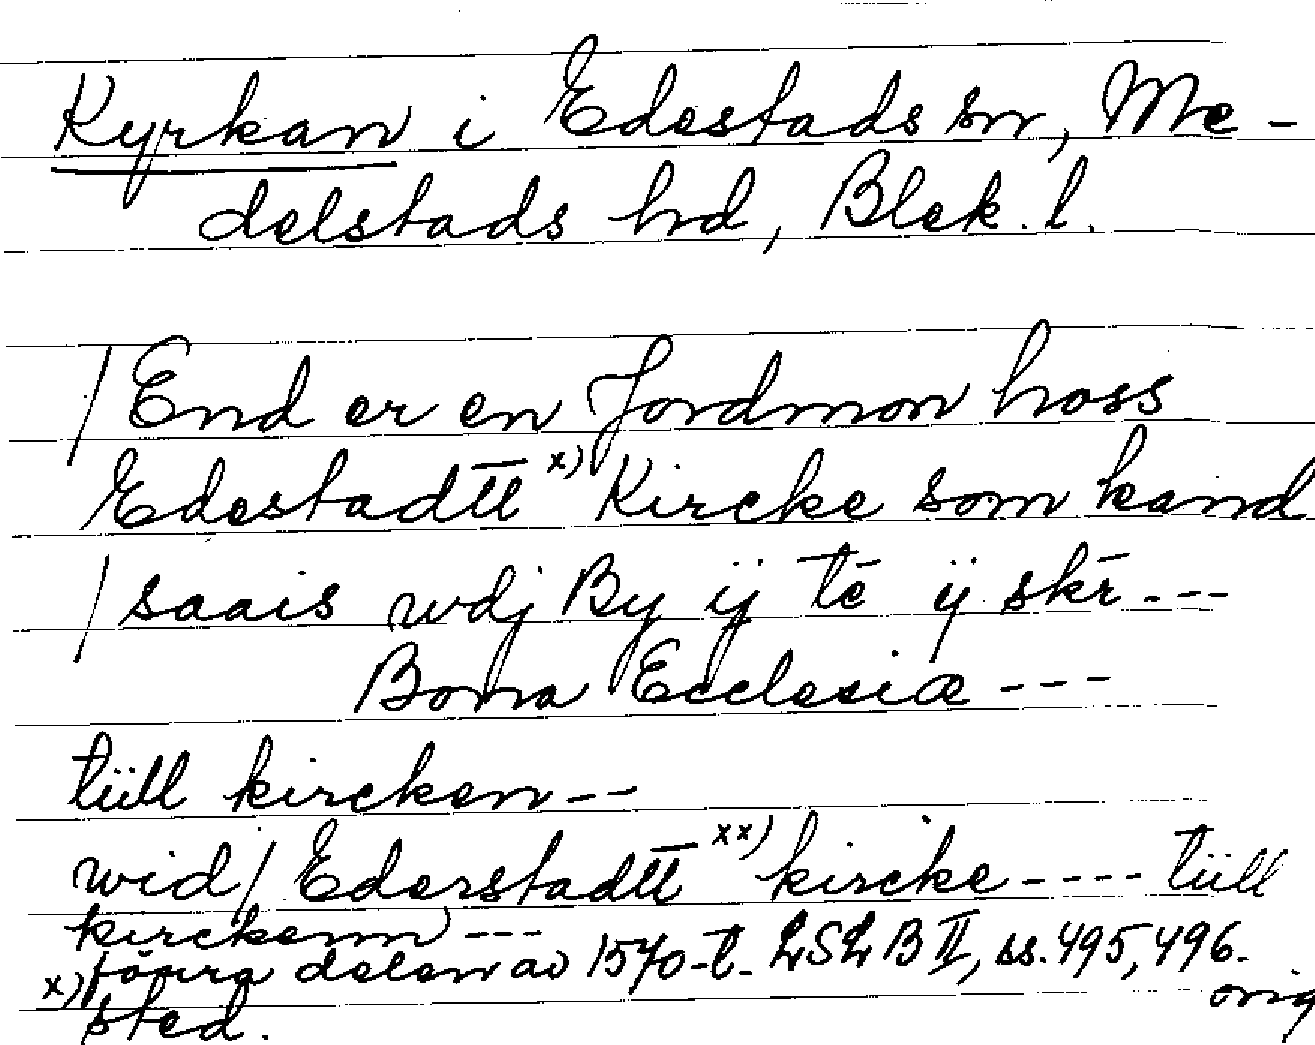 Kyrkan i Edestads sn, Me-
delstads hd, Blek. l.
/ End er en Jordmon hoss
Edestadtt x) Kircke som kand
/ saais wdj By ij tē ij skr̄ ---
Bona Ecclesiæ ---
tüll kircken --
wid / Ederstadtt xx) kircke ---- tüll
kirckenn ---
förra delen av 1570-t. LSLB II, ss. 495, 496.
orig
x) sted.